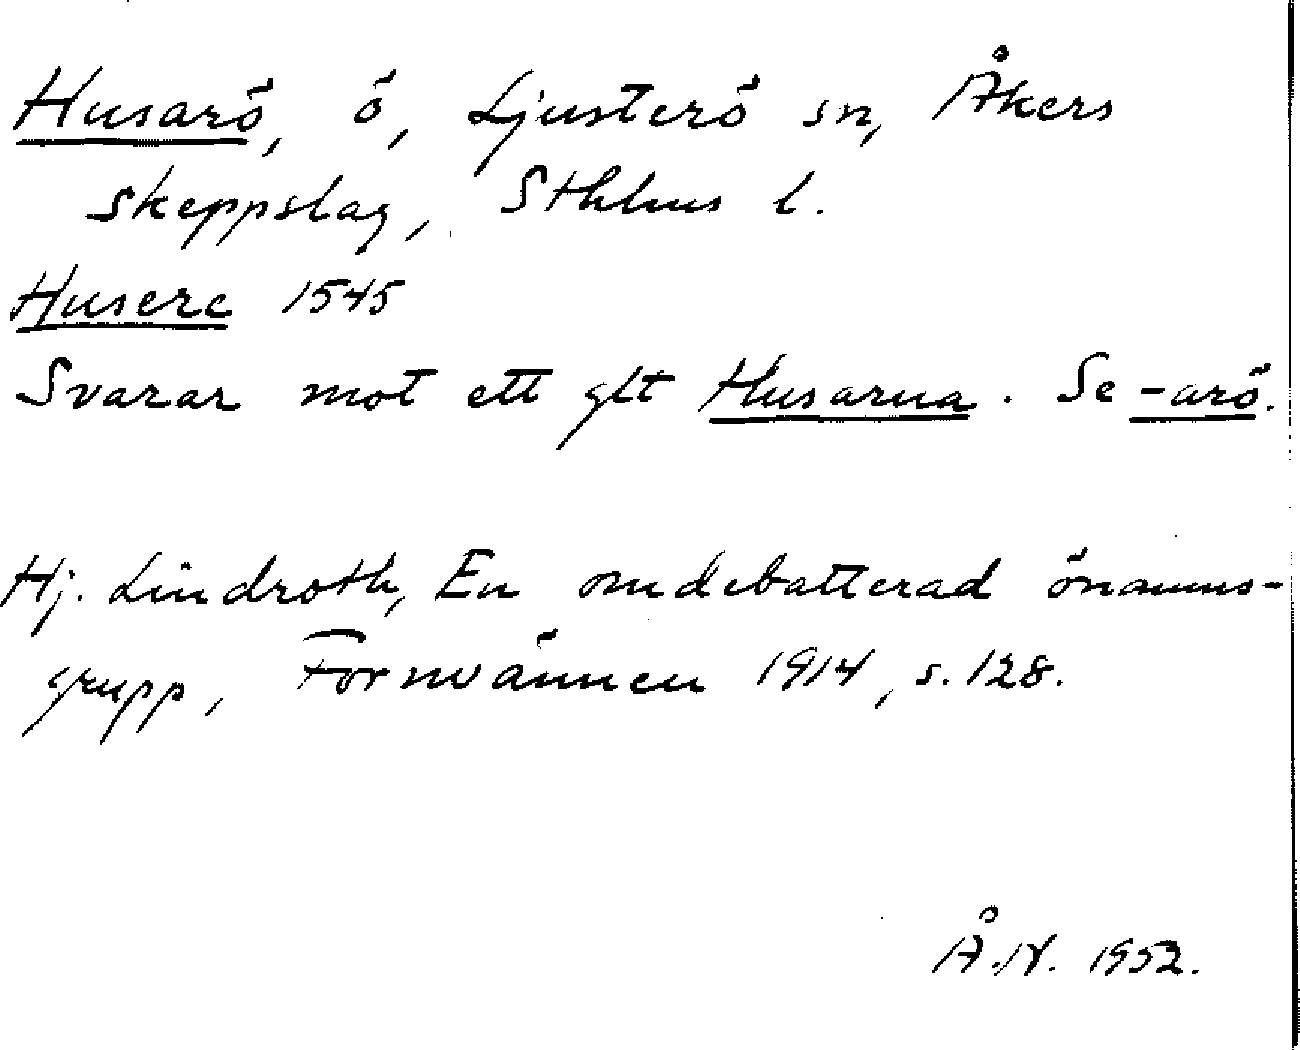 Husarö, ö, Ljusterö sn, Åkers
skeppslag, Sthlms l.
Husere 1545
Svarar mot ett glt Husarna. Se -arö.
Hj. Lindroth, En omdebatterad önamns-
grupp, Fornvännen 1914, s. 128.
Å.N. 1952.